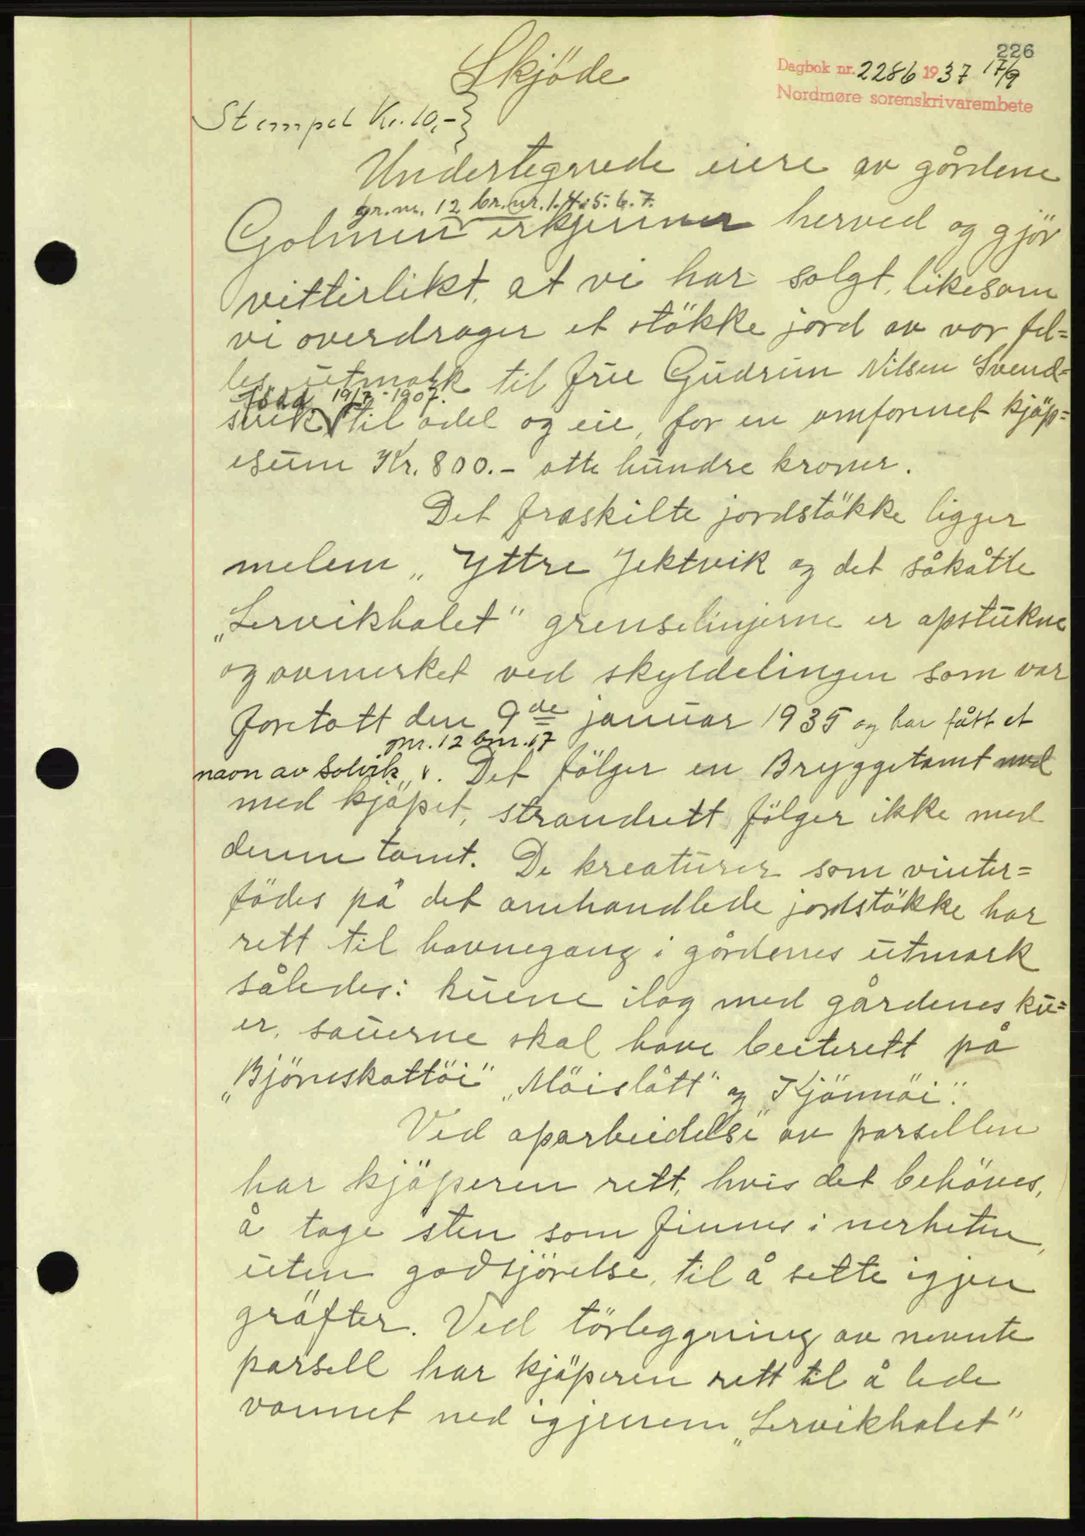 226
Skjöde
Dagbok nr. 2286 1937 17/9
Nordmøre sorenskrivarembete
Stempel Kr. 10,-}
Undertegnede eiere av gårdene
gr.nr. 12 br.nr. 1.4.5.6.7.
Golmen erkjenner herved og gjör
vitterlikt, at vi har solgt, likesom
vi overdrager et stökke jord av vor fel=
les utmark til frue Gudrun Nilsen Svend=
född 19/7-1907.
svik til odel og eie, for en omforenet kjöp=
esum Kr. 800.- otte hundre kroner.
Det fraskilte jordstökke ligger
melem „Yttre Jektvik og det såkåtte
„Lervikhalet" grenselinjerne er opstukne
og avmerket ved skyldelingen som var
foretatt den 9de januar 1935 og har fått et
gnr. 12 bnr. 17
navn av Solvik„ v. Det fölger en Bryggetomt med
med kjöpet, strandrett fölger ikke med
denne tomt. De kreaturer som vinter=
födes på det omhandlede jordstökke har
rett til havnegang i gårdenes utmark
således: kuene ilag med gårdenes ku=
er, sauerne skal have beiterett på
„Bjöneskattöi" „Möislått" og Kjönnöi".
Ved oparbeidelse av parsellen
har kjöperen rett, hvis det behöves,
å tage sten som finnes i nerheten,
uten godtsjörelse, til å sette igjen
gröfter. Ved törleggning av nevnte
parsell har kjöperen rett til å lede
vannet ned igjenem „Lervikhalet"